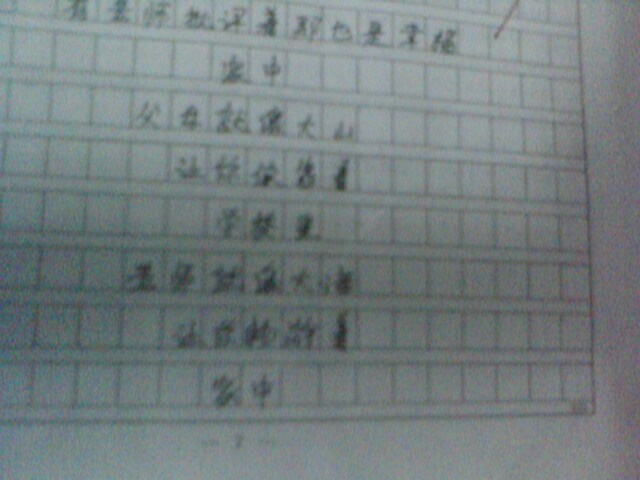 有老师批评着那也是幸福
家中
父母就像大山
让你依靠着
学校里
老师就像大海
让你畅游着
家中
— 7 —